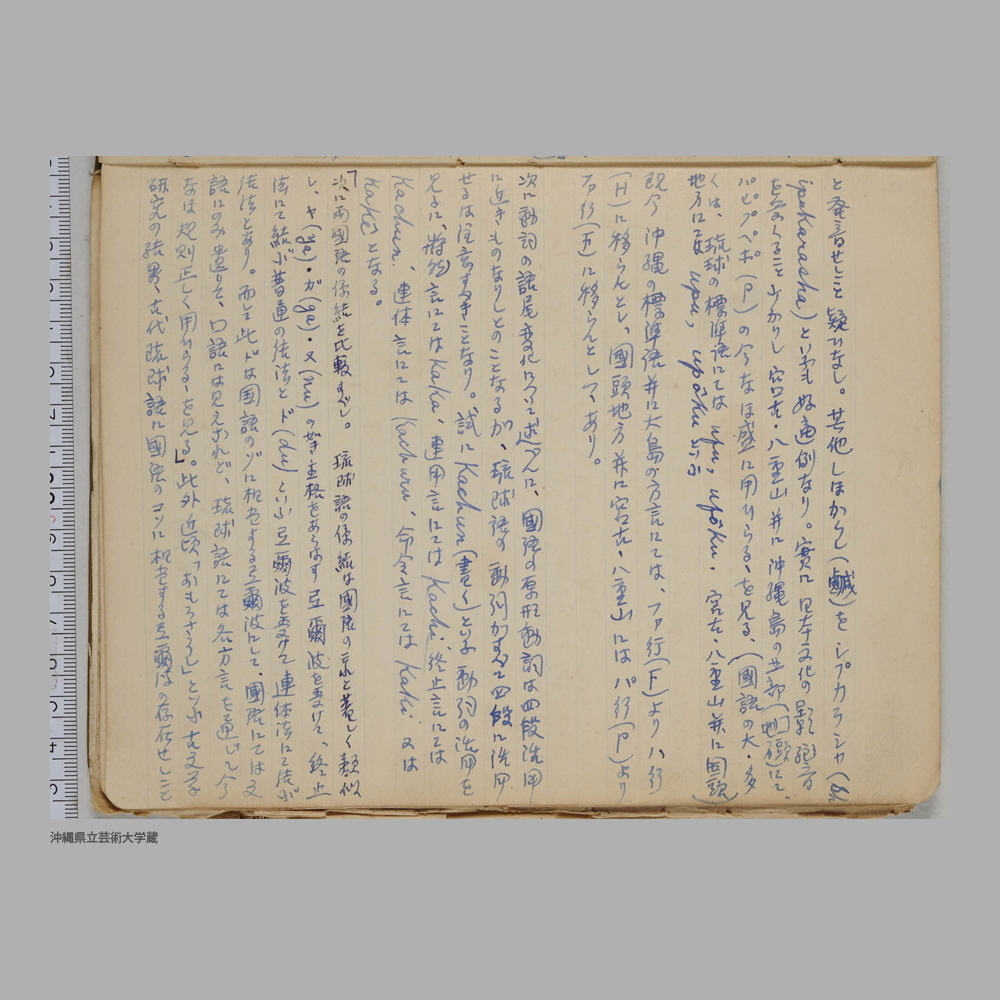 と発音せしこと疑ひなし。其他しほからし(鹹)をシプカラシャ(Si-
pukarasha)といふも好適例なり。實に日本文化の影響
を受くること少かりし宮古・八重山并に沖縄島の北部にて、
パピプペポ(P)の今なほ盛に用ひらるゝを見る、(國語の大・多
くは、琉球の標準語にては upu, upōku. 宮古・八重山并に国頭
地方にては upu, upōku といふ)
現今沖縄の標準語并に大島の方言にては、ファ行(F)よりハ行
(H)に移らんとし、國頭地方并に宮古・八重山にはパ行(P)より
ファ行(F)に移らんとしつゝあり。
次に動詞の語尾変化について述べんに、國語の原形動詞は四段活用
に近きものなりしとのことなるが、琉球語の動詞がすべて四段に活用
せるは注意すべきことなり。試に Kachun(書く)といふ動詞の活用を
見るに、將然言にては Kaka、連用言にては Kachi、終止言にては
Kachun、連体言にては Kachuru、命令言にては Kaki 又は
Kakè となる。
「次に両國語の係結を比較すべし。琉球語の係結は國語のそれと著しく類似
し、ヤ(ya)・ガ(ga)・ヌ(nu)の等主格をあらはす弖爾波を受けて、終止
法にて結ぶ普通の結法とド(du)といふ弖爾波を受けて連体法にて結ぶ
結法とあり。而して此ドは国語のゾに相当する弖爾波にして、國語にては文
語にのみ遺りて、口語には見えざれど、琉球語にては各方言を通じて今
なほ規則正しく用ひらるゝを見る」。此外近頃「おもろさうし」といふ古文学
研究の結果、古代琉球語に國語のコソに相当する弖爾波の存在せしこと
沖縄県立芸術大学蔵